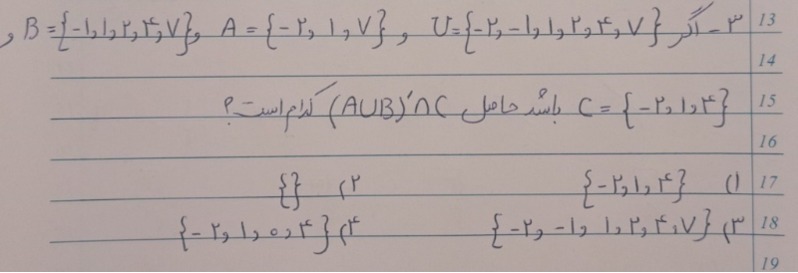 13 ۳- اگر U={-۲, -۱, ۱, ۲, ۴, ۷} , A={-۲, ۱, ۷} , B={-۱, ۱, ۲, ۴, ۷} ,
14
15 C={-۲, ۱, ۴} باشد حاصل (A∪B)′∩C کدام است؟
16
17 ۱) {-۲, ۱, ۴} ۲) {}
18 ۳) {-۲, -۱, ۱, ۲, ۴, ۷} ۴) {-۲, ۱, ۰, ۴}
19